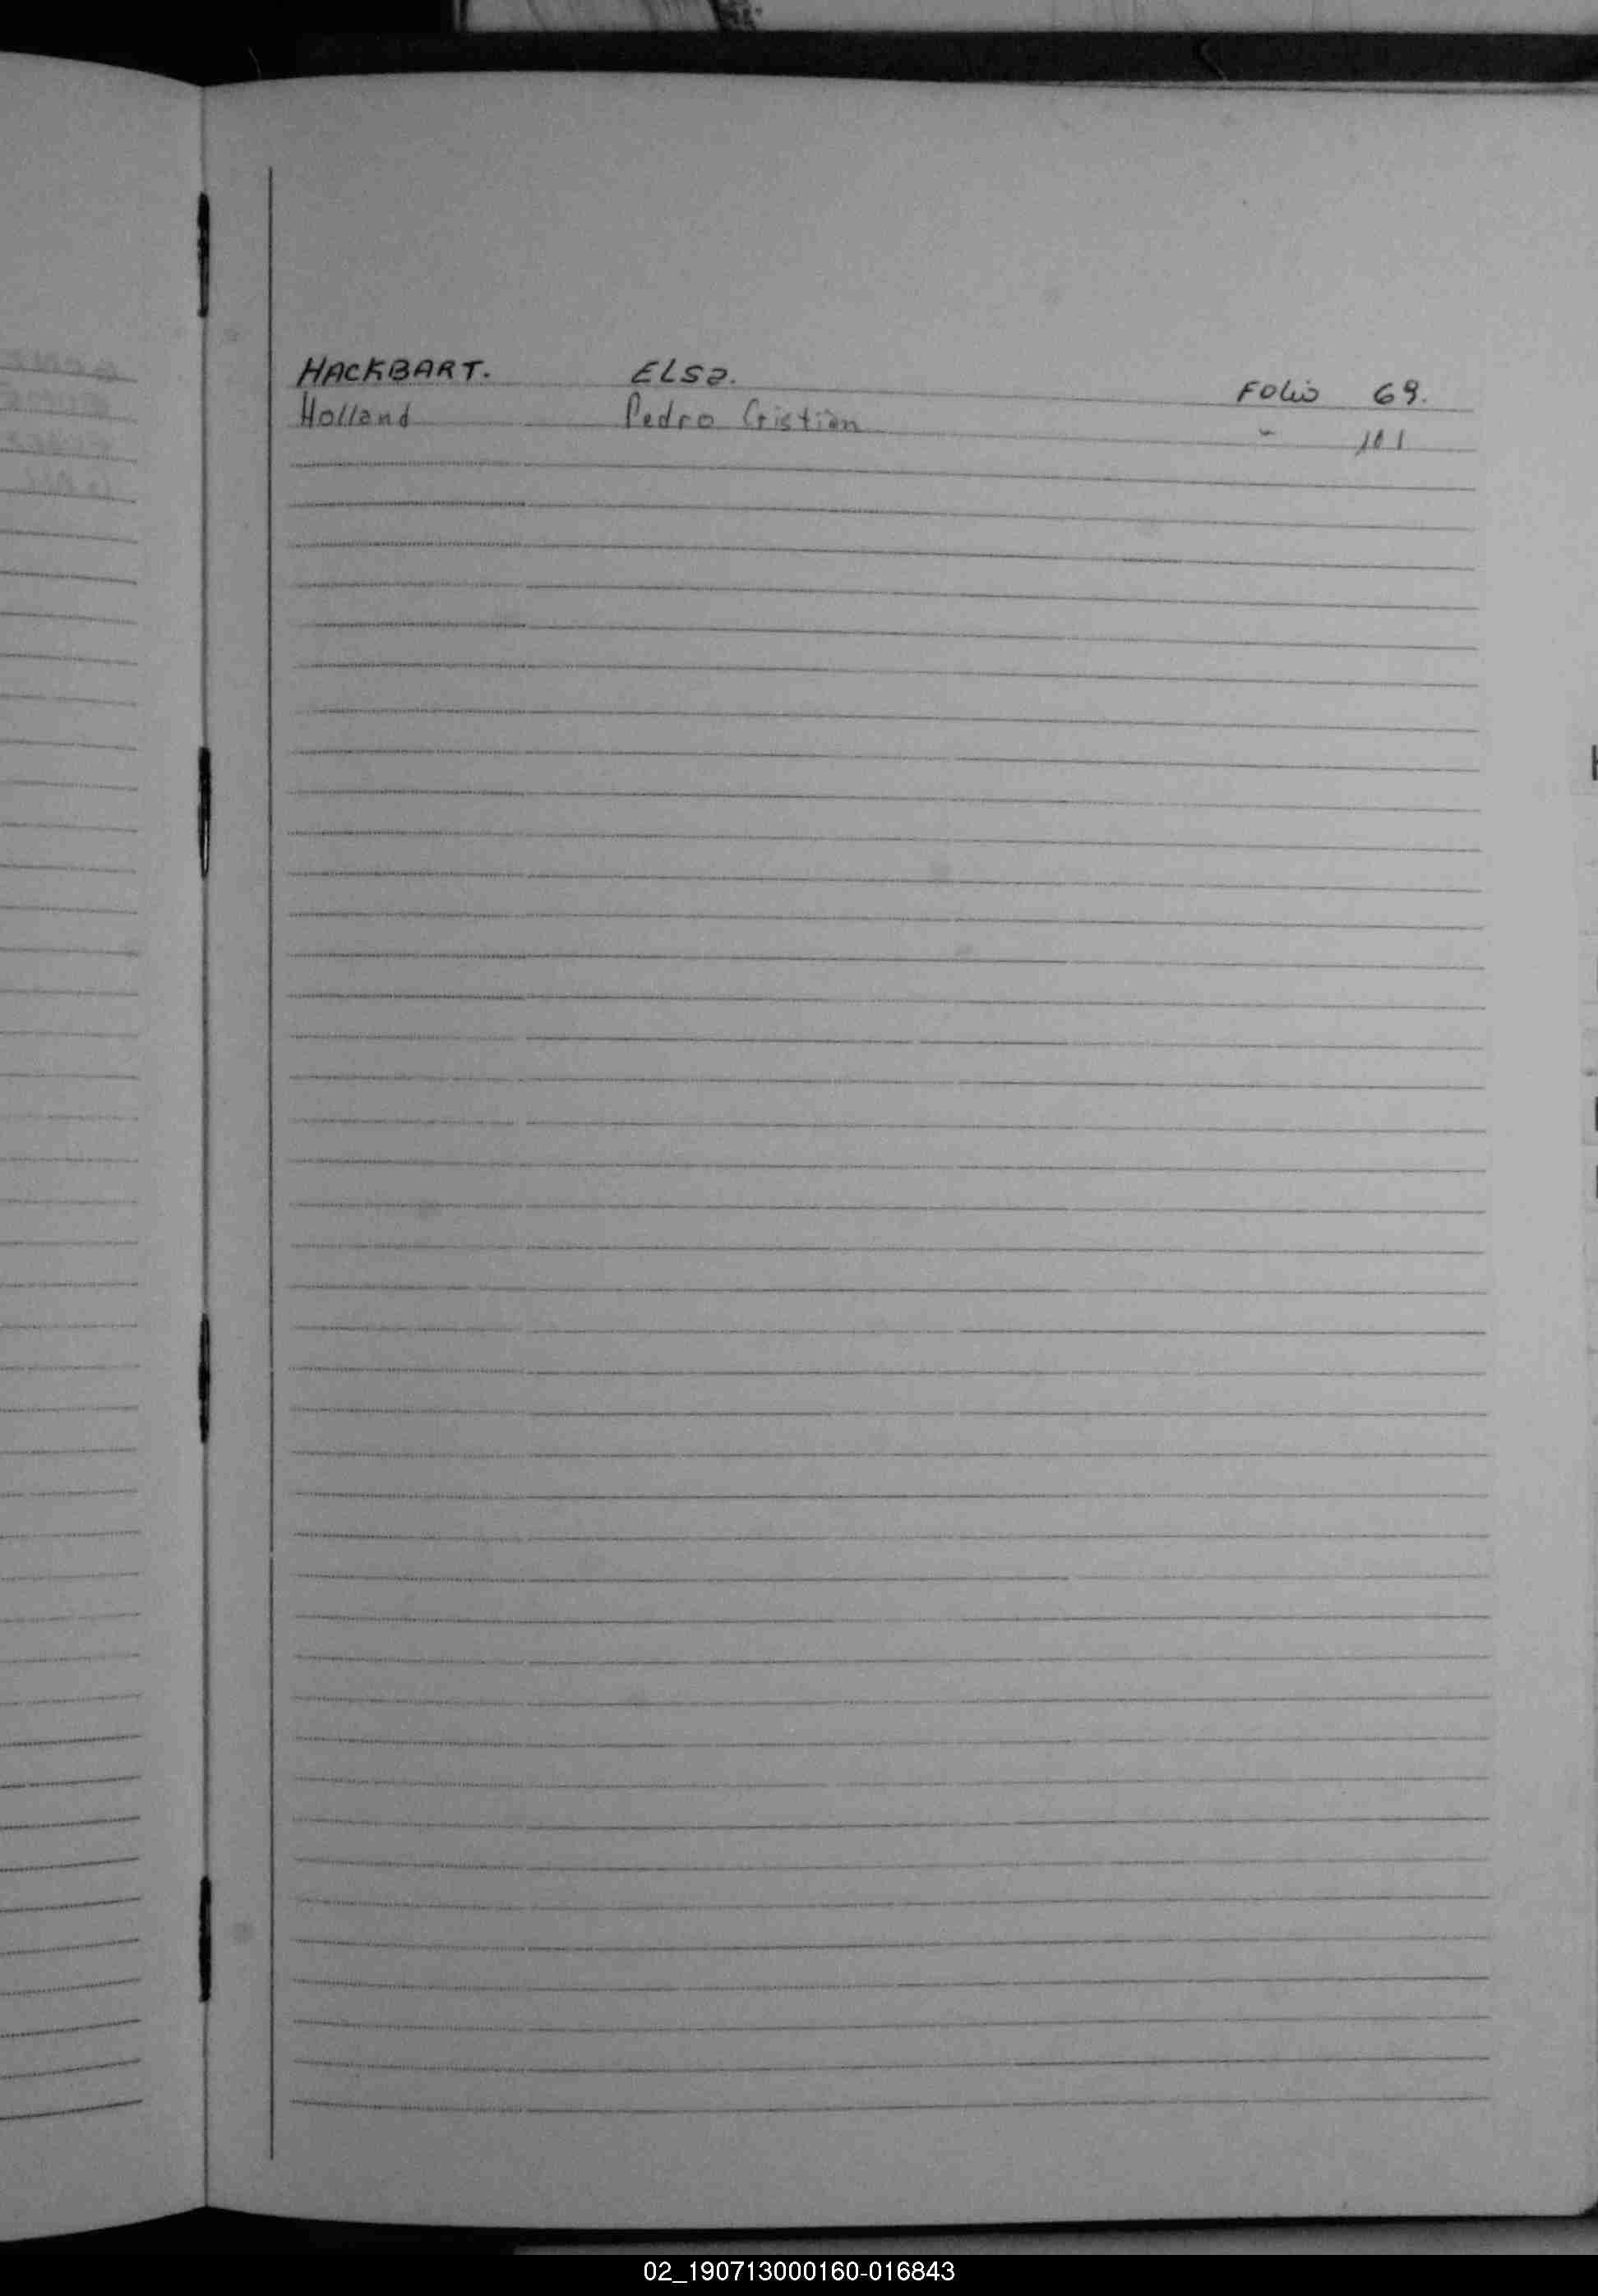 HACKBART. ELSA. Folio 69.
Holland Pedro Cristian " 101
02_190713000160-016843